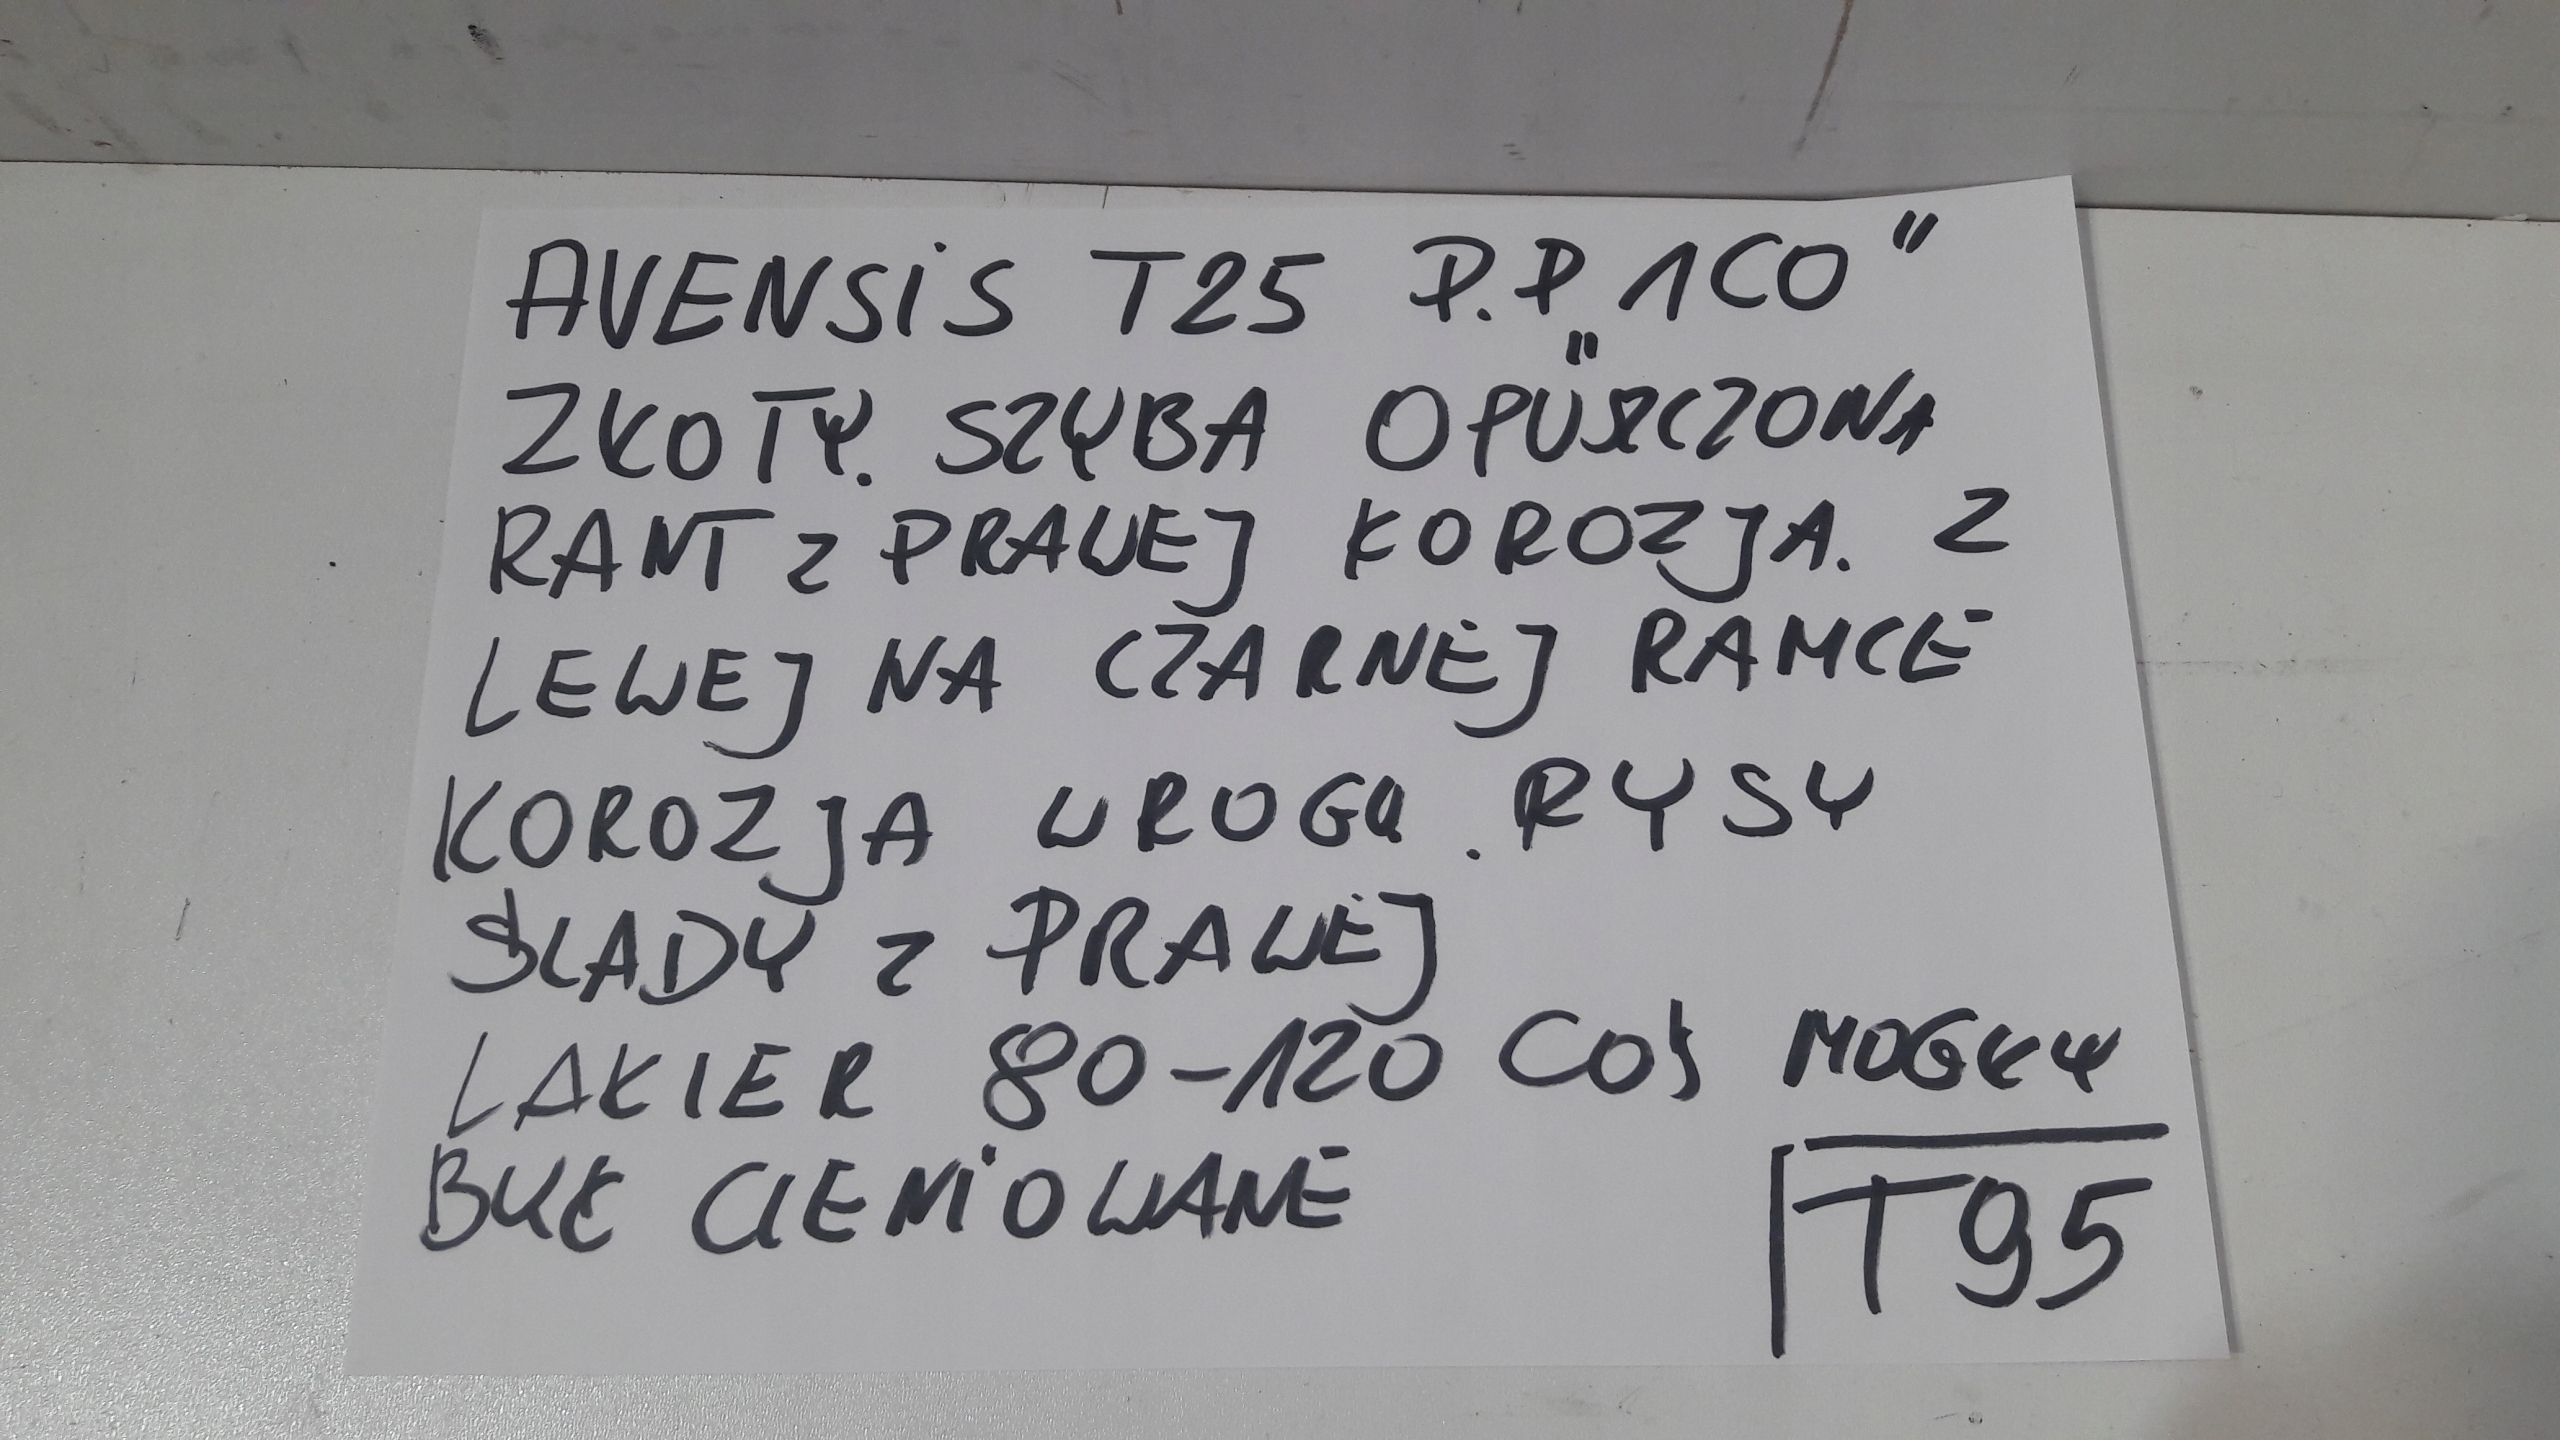 AVENSiS T25 P.P 1C0"
ZŁOTY. SZYBA OPUSZCZONA
RANT z PRAWEJ KOROZJA. Z
LEWEJ NA CZARNEJ RAMCE
KOROZJA W ROGU. RYSY
ŚLADY z PRAWEJ
LAKIER 80-120 COŚ MOGŁY
BYĆ CIENIOWANE
T95